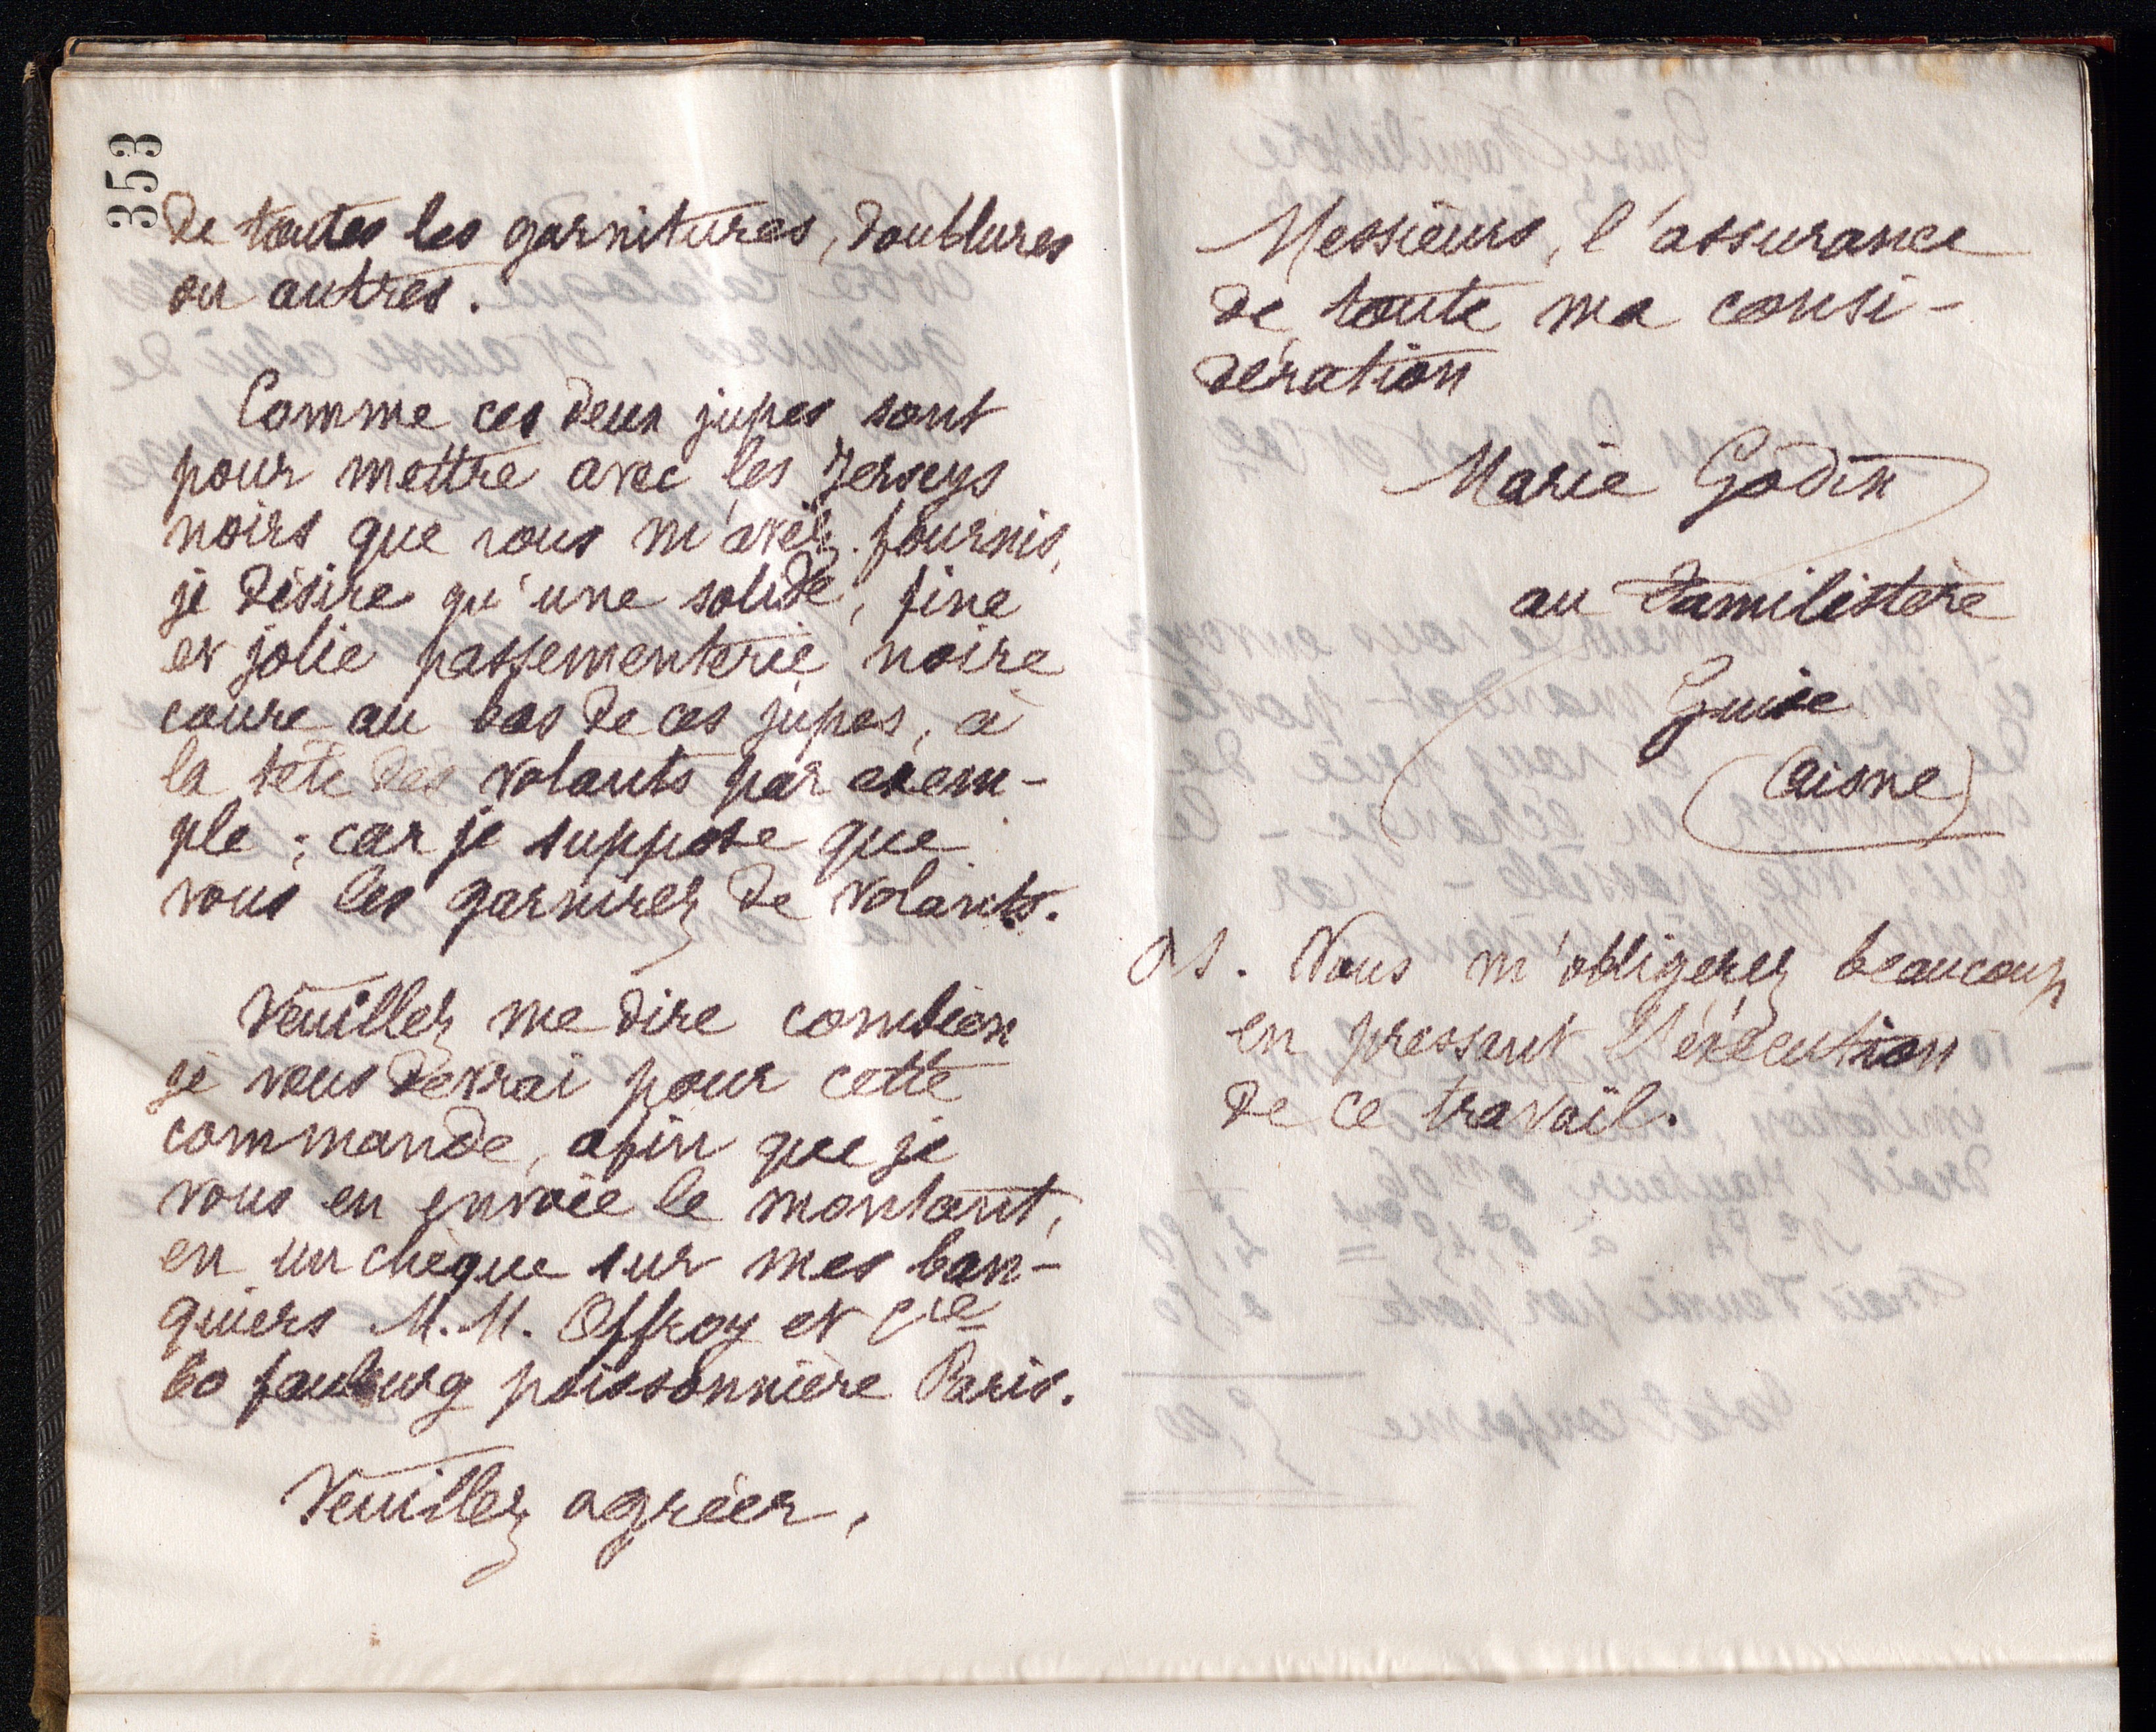 353
de toutes les garnitures, doublures
ou autres.
Comme ces deux jupes sont
pour mettre avec les Jerseys
noirs que vous m'avez fournis,
je désire qu'une solide, fine
et jolie passementerie noire
coure au bas de ces jupes, à
la tête des volants par exem-
ple ; car je suppose que
vous les garnirez de volants.
Veuillez me dire combien
je vous devrai pour cette
commande, afin que je
vous en envoie le montant,
en un chèque sur mes ban-
quiers M.M. Offroy et Cie
60 faubourg poissonnière Paris.
Veuillez agréer,
Messieurs, l'assurance
de toute ma consi-
dération
Marie Godin
au Familistère
Guise
(Aisne)
PS. Vous m'obligerez beaucoup
en pressant l'exécution
de ce travail.